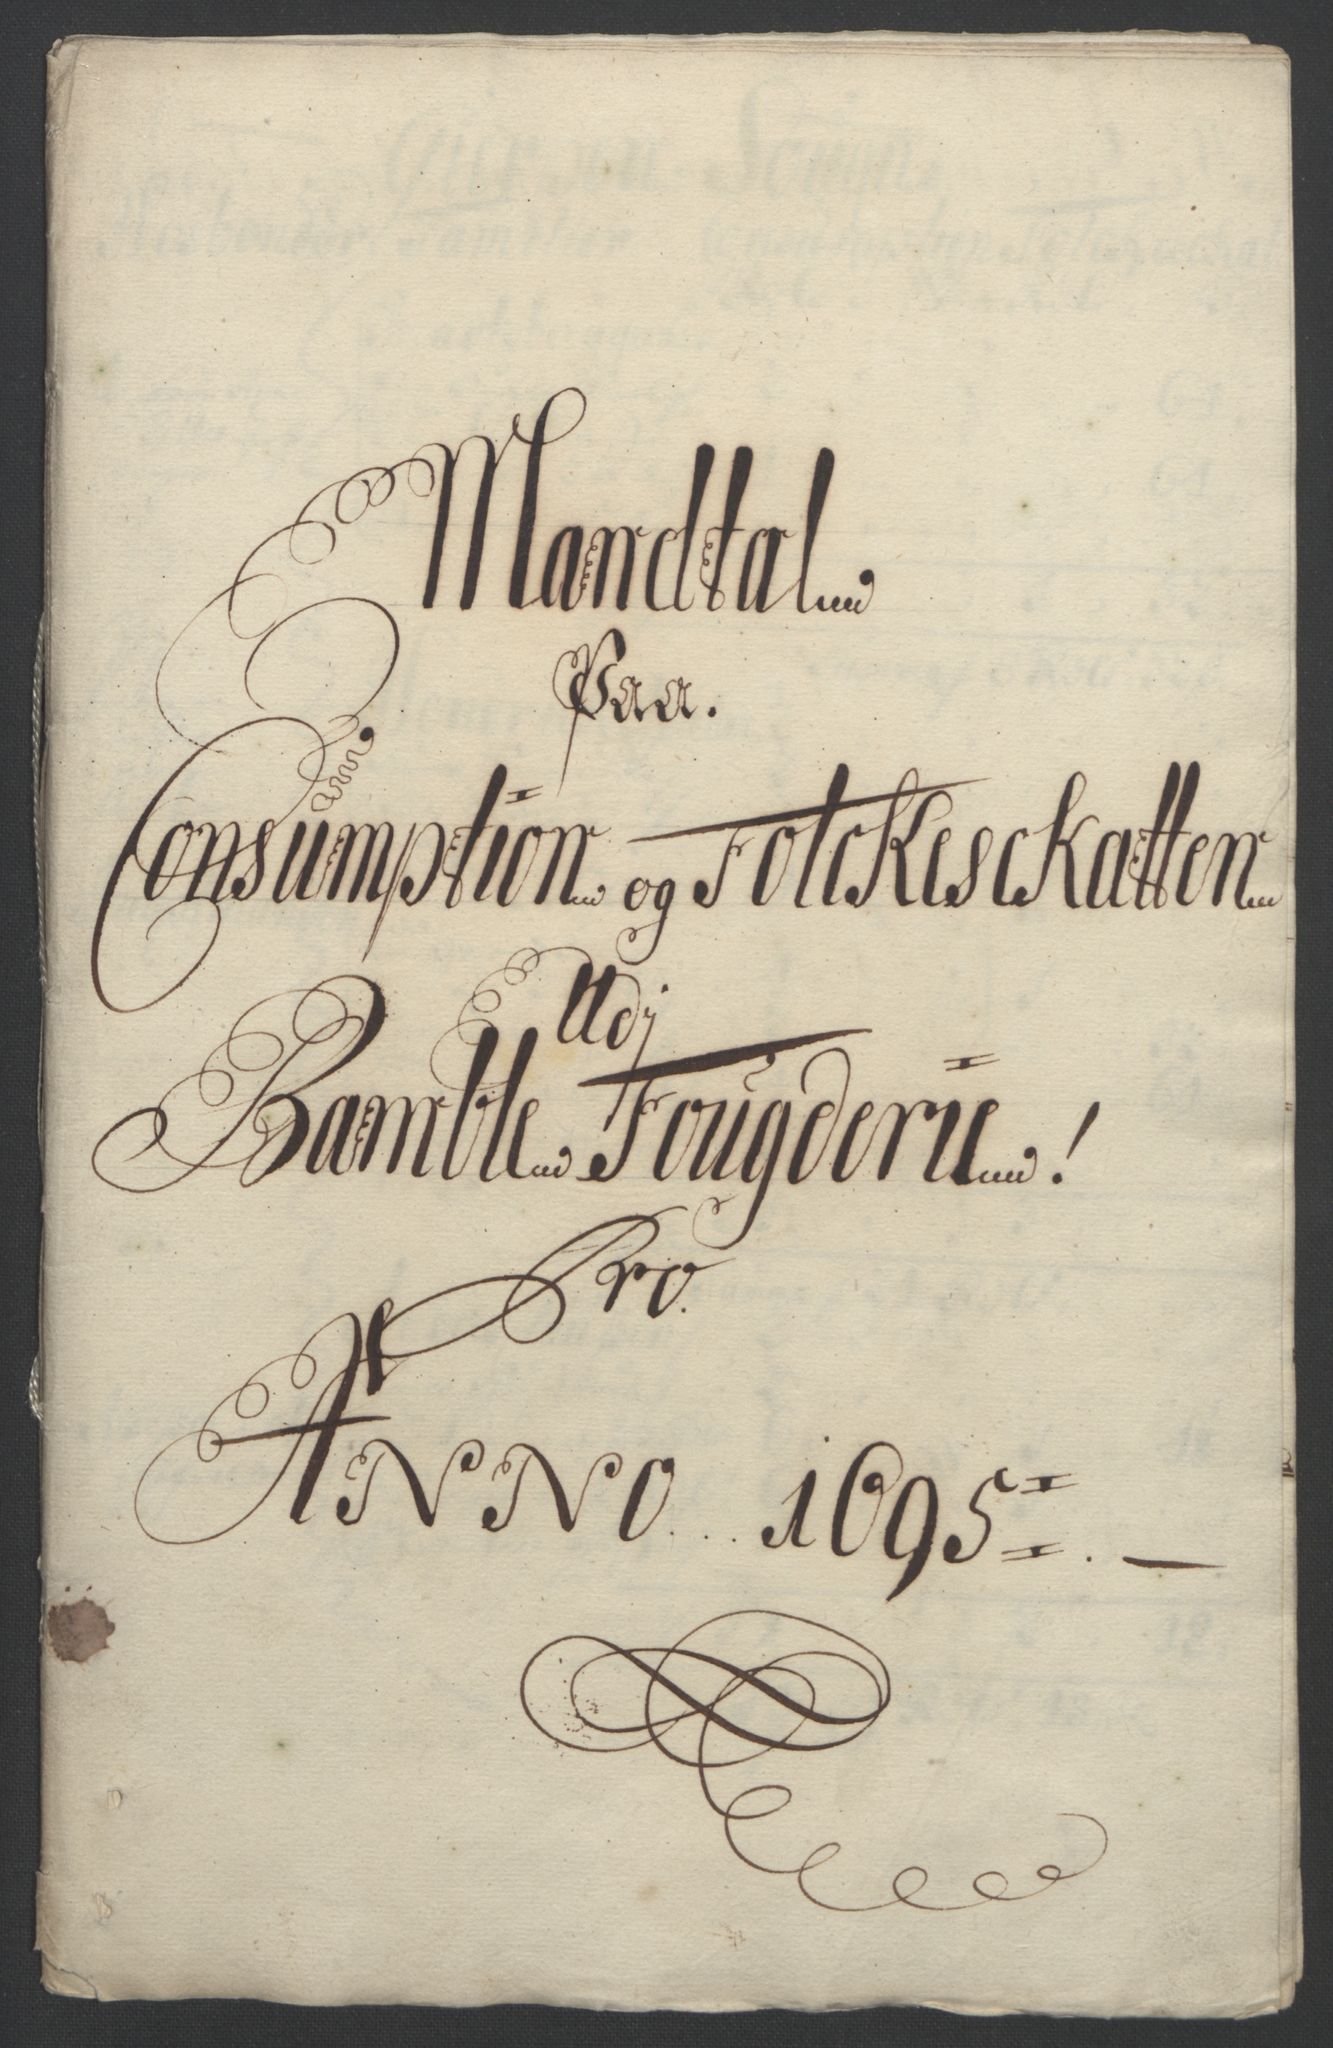 Mandtal
Paa.
Consumption og Folckeschatten
Udj
Bamble Fougderie!
Pro
ANNO 1695 —